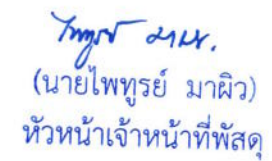 ไพทูรย์ มาผิว.
(นายไพทูรย์ มาผิว)
หัวหน้าเจ้าหน้าที่พัสดุ